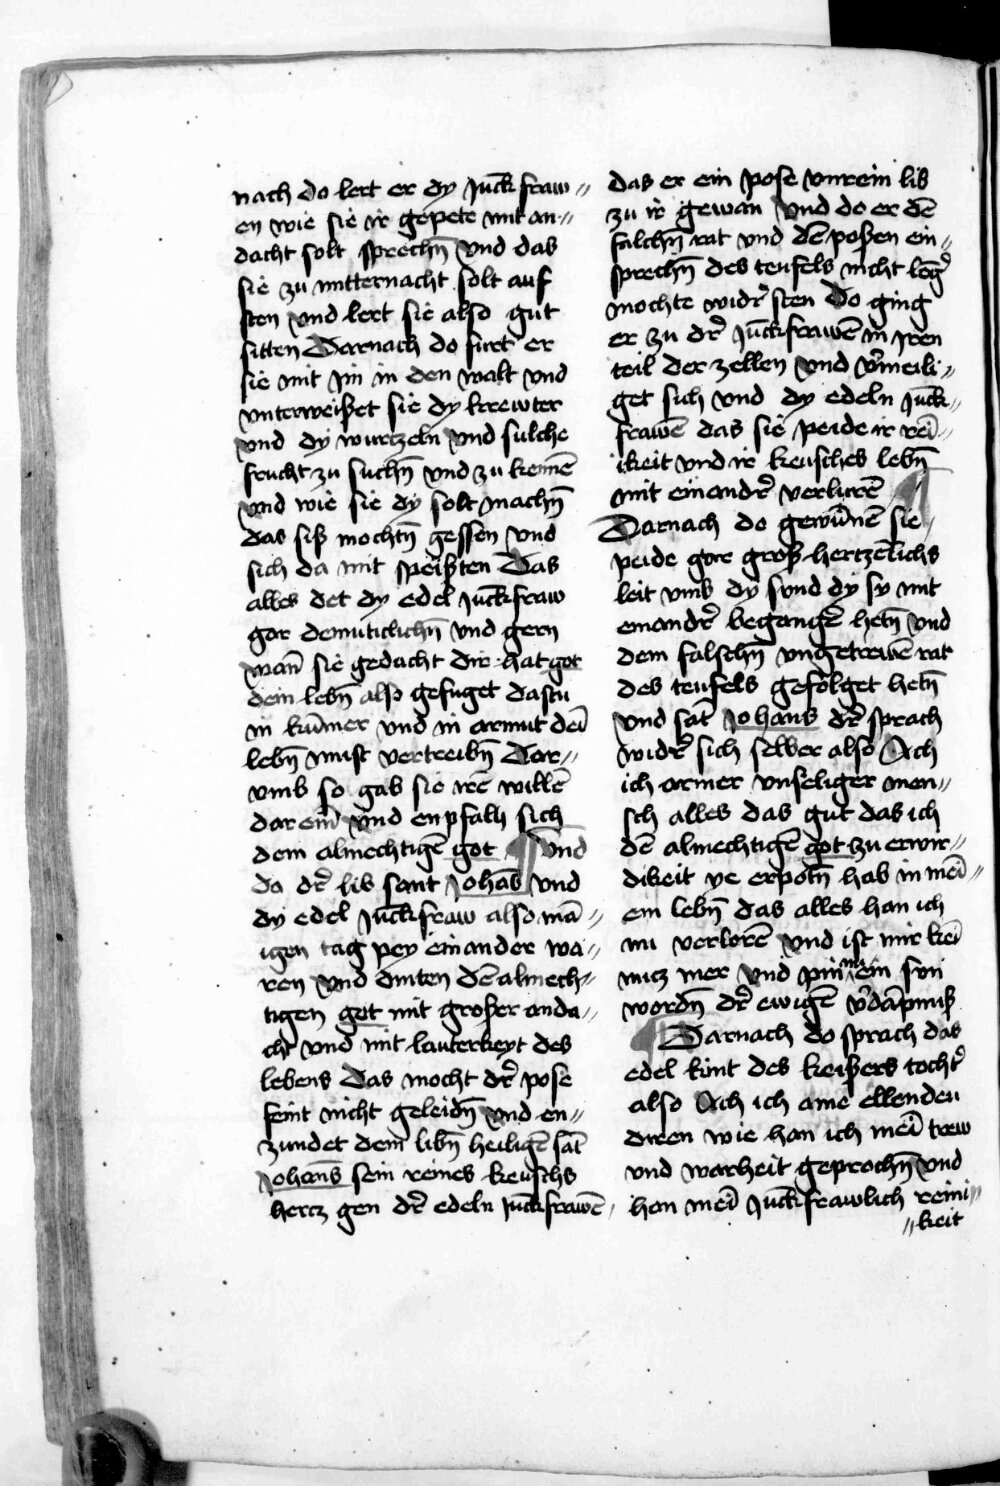 nach do lert er dy Juckfraw〃
en wie sie ir gepete mit an〃
dacht solt sprechn̄ vnd das
sie zu mitternacht solt auf
sten vnd lert sie also gut
sitten Darnach do furt er
sie mit ym in den walt vnd
vnterweißet sie dy krewter
vnd dy wurtzeln vnd sulche
frucht zu suchn̄ vnd zu kennē
vnd wie sie dy solt machn̄
das siß mochtn̄ gessen vnd
sich da mit speißten Das
alles det dy edel Juckfraw
gar demuticlichn̄ vnd gern
wan̄ sie gedacht dir hat got
dein lebn̄ also gefuget dastu
in kum̄er vnd in armut dei͞
lebn̄ must vertreibn̄ Dar〃
vmb so gab sie irē willē
dar ein̄ vnd enpfalh sich
dem almechtigē got ¶ Vnd
da dr̄ lib sant Johās vnd
dy edel Juckfraw also mā〃
igen tag pey ein ander wa〃
ren vnd dinten dē almech〃
tigen got mit großer anda〃
cht vnd mit lauterkeyt des
lebens Das mocht dr̄ pose
feint nicht geleidn̄ vnd en〃
zundet dem libn̄ heiligē sāt
Johans̄ sein reines keuschs
hertz gen dr̄ edeln Juckfrawē
das er ein pose vnrein lib
zu ir gewan vnd do er dē
falchn̄ rat vnd dē poßen ein〃
sprechn̄ des teufels nicht lenḡ
mochte widr̄ sten Do ging
er zu dr̄ Juckfrawē in Jren
teil der zellen vnd v̄meili〃
get sich vnd dy edeln Juck〃
frawē das sie peide ir rei͞〃
ikeit vnd ir keusches lebn̄
mit einandr̄ verlurē ¶
Darnach do gewūnē sie〃
peide gar groß hertzēlichs
leit vmb dy sund dy sy mit
einandr̄ begangē hetn̄ vnd
dem falschn̄ vngetrewē rat
des teufels gefolget hetn̄
vnd sāt Johans dr̄ sprach
widr̄ sich selber also Ach
ich armer vnseliger men〃
sch alles das gut das ich
dē almechtigē got zu erwir〃
dikeit ye erpotn̄ hab in mei͞〃
em lebn̄ das alles han ich
nu verlorē vnd ist mir kei͞
nucz mer vnd pin nu ein sun
wordn̄ dr̄ ewigē v̄dāpnuß
¶ Darnach do sprach das
edel kint des keißers tocht̄
also Ach ich arme ellenden
diren wie han ich mei͞ trew
vnd warheit geprochn̄ vnd
han mei͞ Juckfrawlich reini〃
〃keit